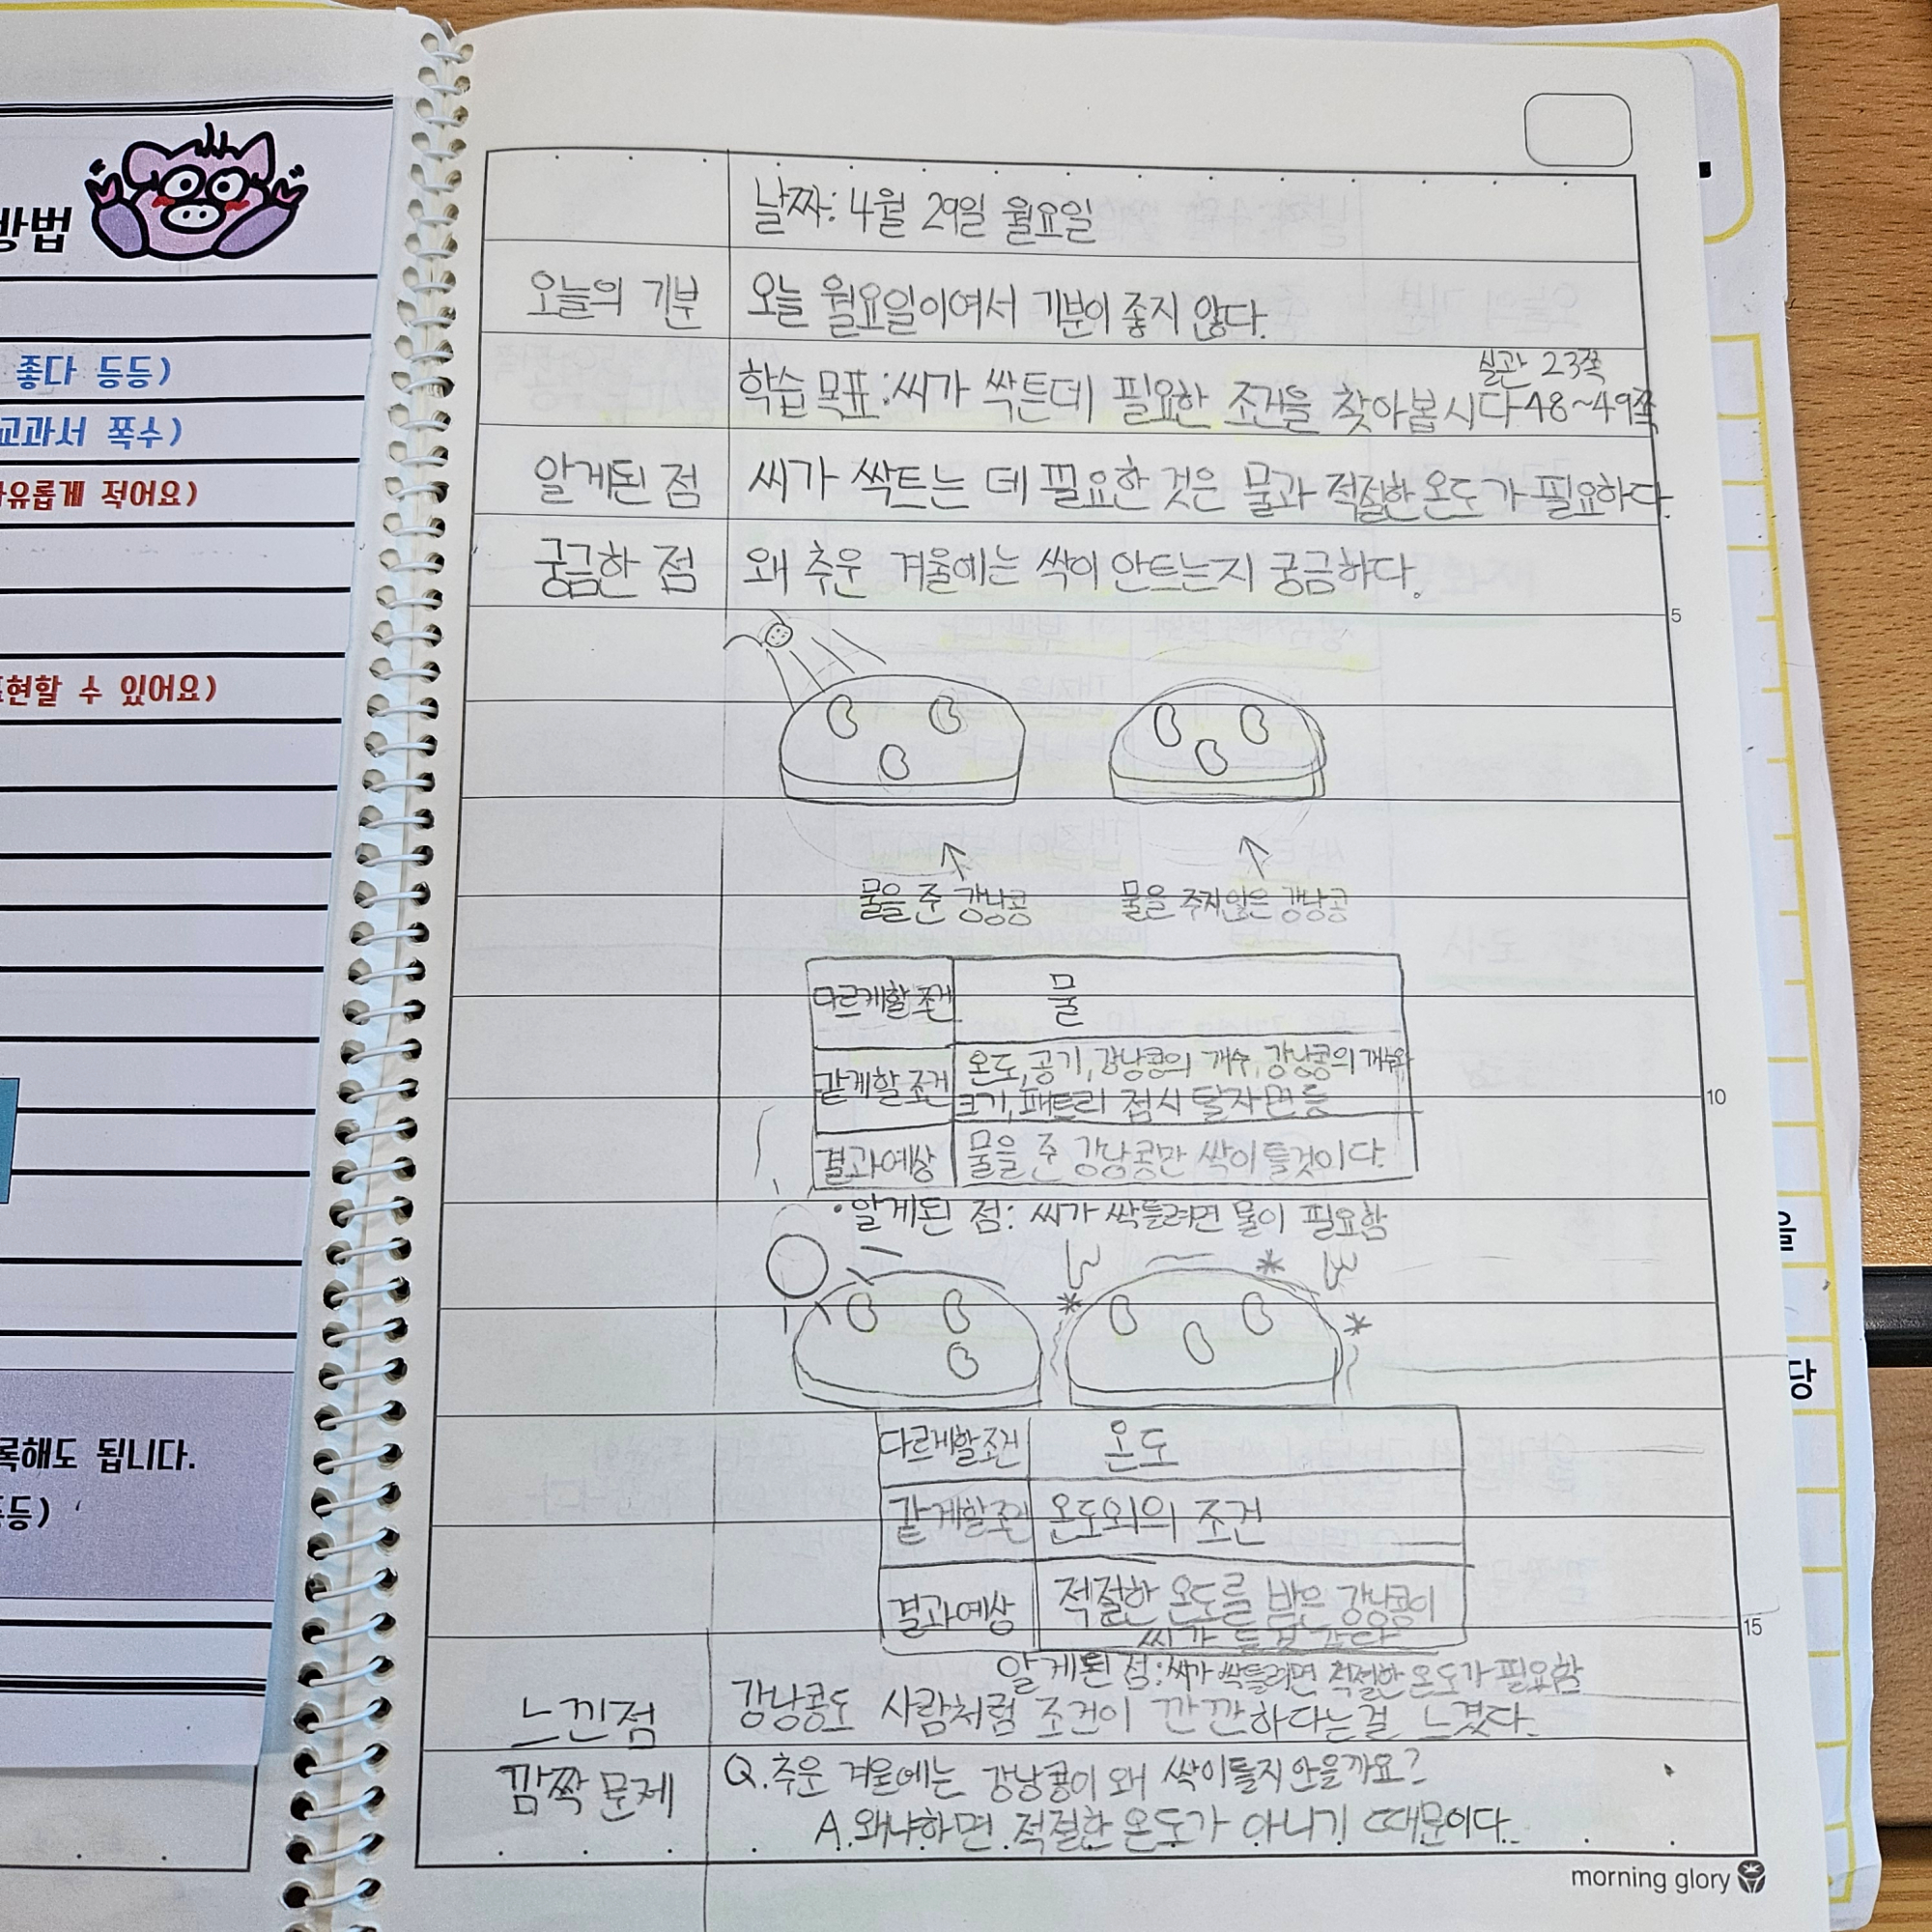 방법
좋다 등등)
교과서 쪽수)
유롭게 적어요)
표현할 수 있어요)
록해도 됩니다.
등등)
날짜: 4월 29일 월요일
오늘의 기분
오늘 월요일이여서 기분이 좋지 않다.
실관 23쪽
학습 목표: 씨가 싹튼데 필요한 조건을 찾아봅시다 48~49쪽
알게된 점
씨가 싹트는 데 필요한 것은 물과 적절한 온도가 필요하다.
궁금한 점
왜 추운 겨울에는 싹이 안트는지 궁금하다.
5
물을 준 강낭콩
물을 주지않은 강낭콩
다르게할 조건
물
같게할 조건
온도, 공기, 강낭콩의 개수, 강낭콩의 개수와
크기, 패트리 접시 탈지면 등
10
결과예상
물을 준 강낭콩만 싹이 틀것이다.
• 알게된 점: 씨가 싹틀려면 물이 필요함
다르게할 조건
온도
같게할 조건
온도외의 조건
결과예상
적절한 온도를 받은 강낭콩이
씨가 틀것 같다
15
알게된 점: 씨가 싹틀려면 적절한 온도가 필요함
느낀점
강낭콩도 사람처럼 조건이 깐깐하다는걸 느꼈다.
깜짝 문제
Q. 추운 겨울에는 강낭콩이 왜 싹이틀지 안을까요?
A. 왜냐하면 적절한 온도가 아니기 때문이다.
morning glory
을
당